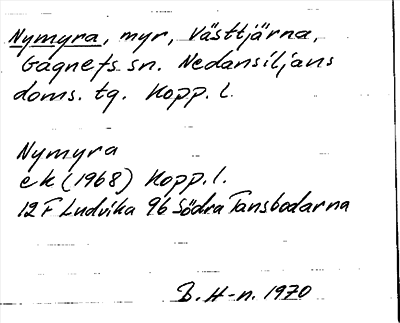 Nymyra, myr, Västtjärna,
Gagnefs sn. Nedansiljans
doms. tg. Kopp. l.
Nymyra
ek (1968) Kopp. l.
12 F Ludvika 9b Södra Tansbodarna
B. H-n. 1970